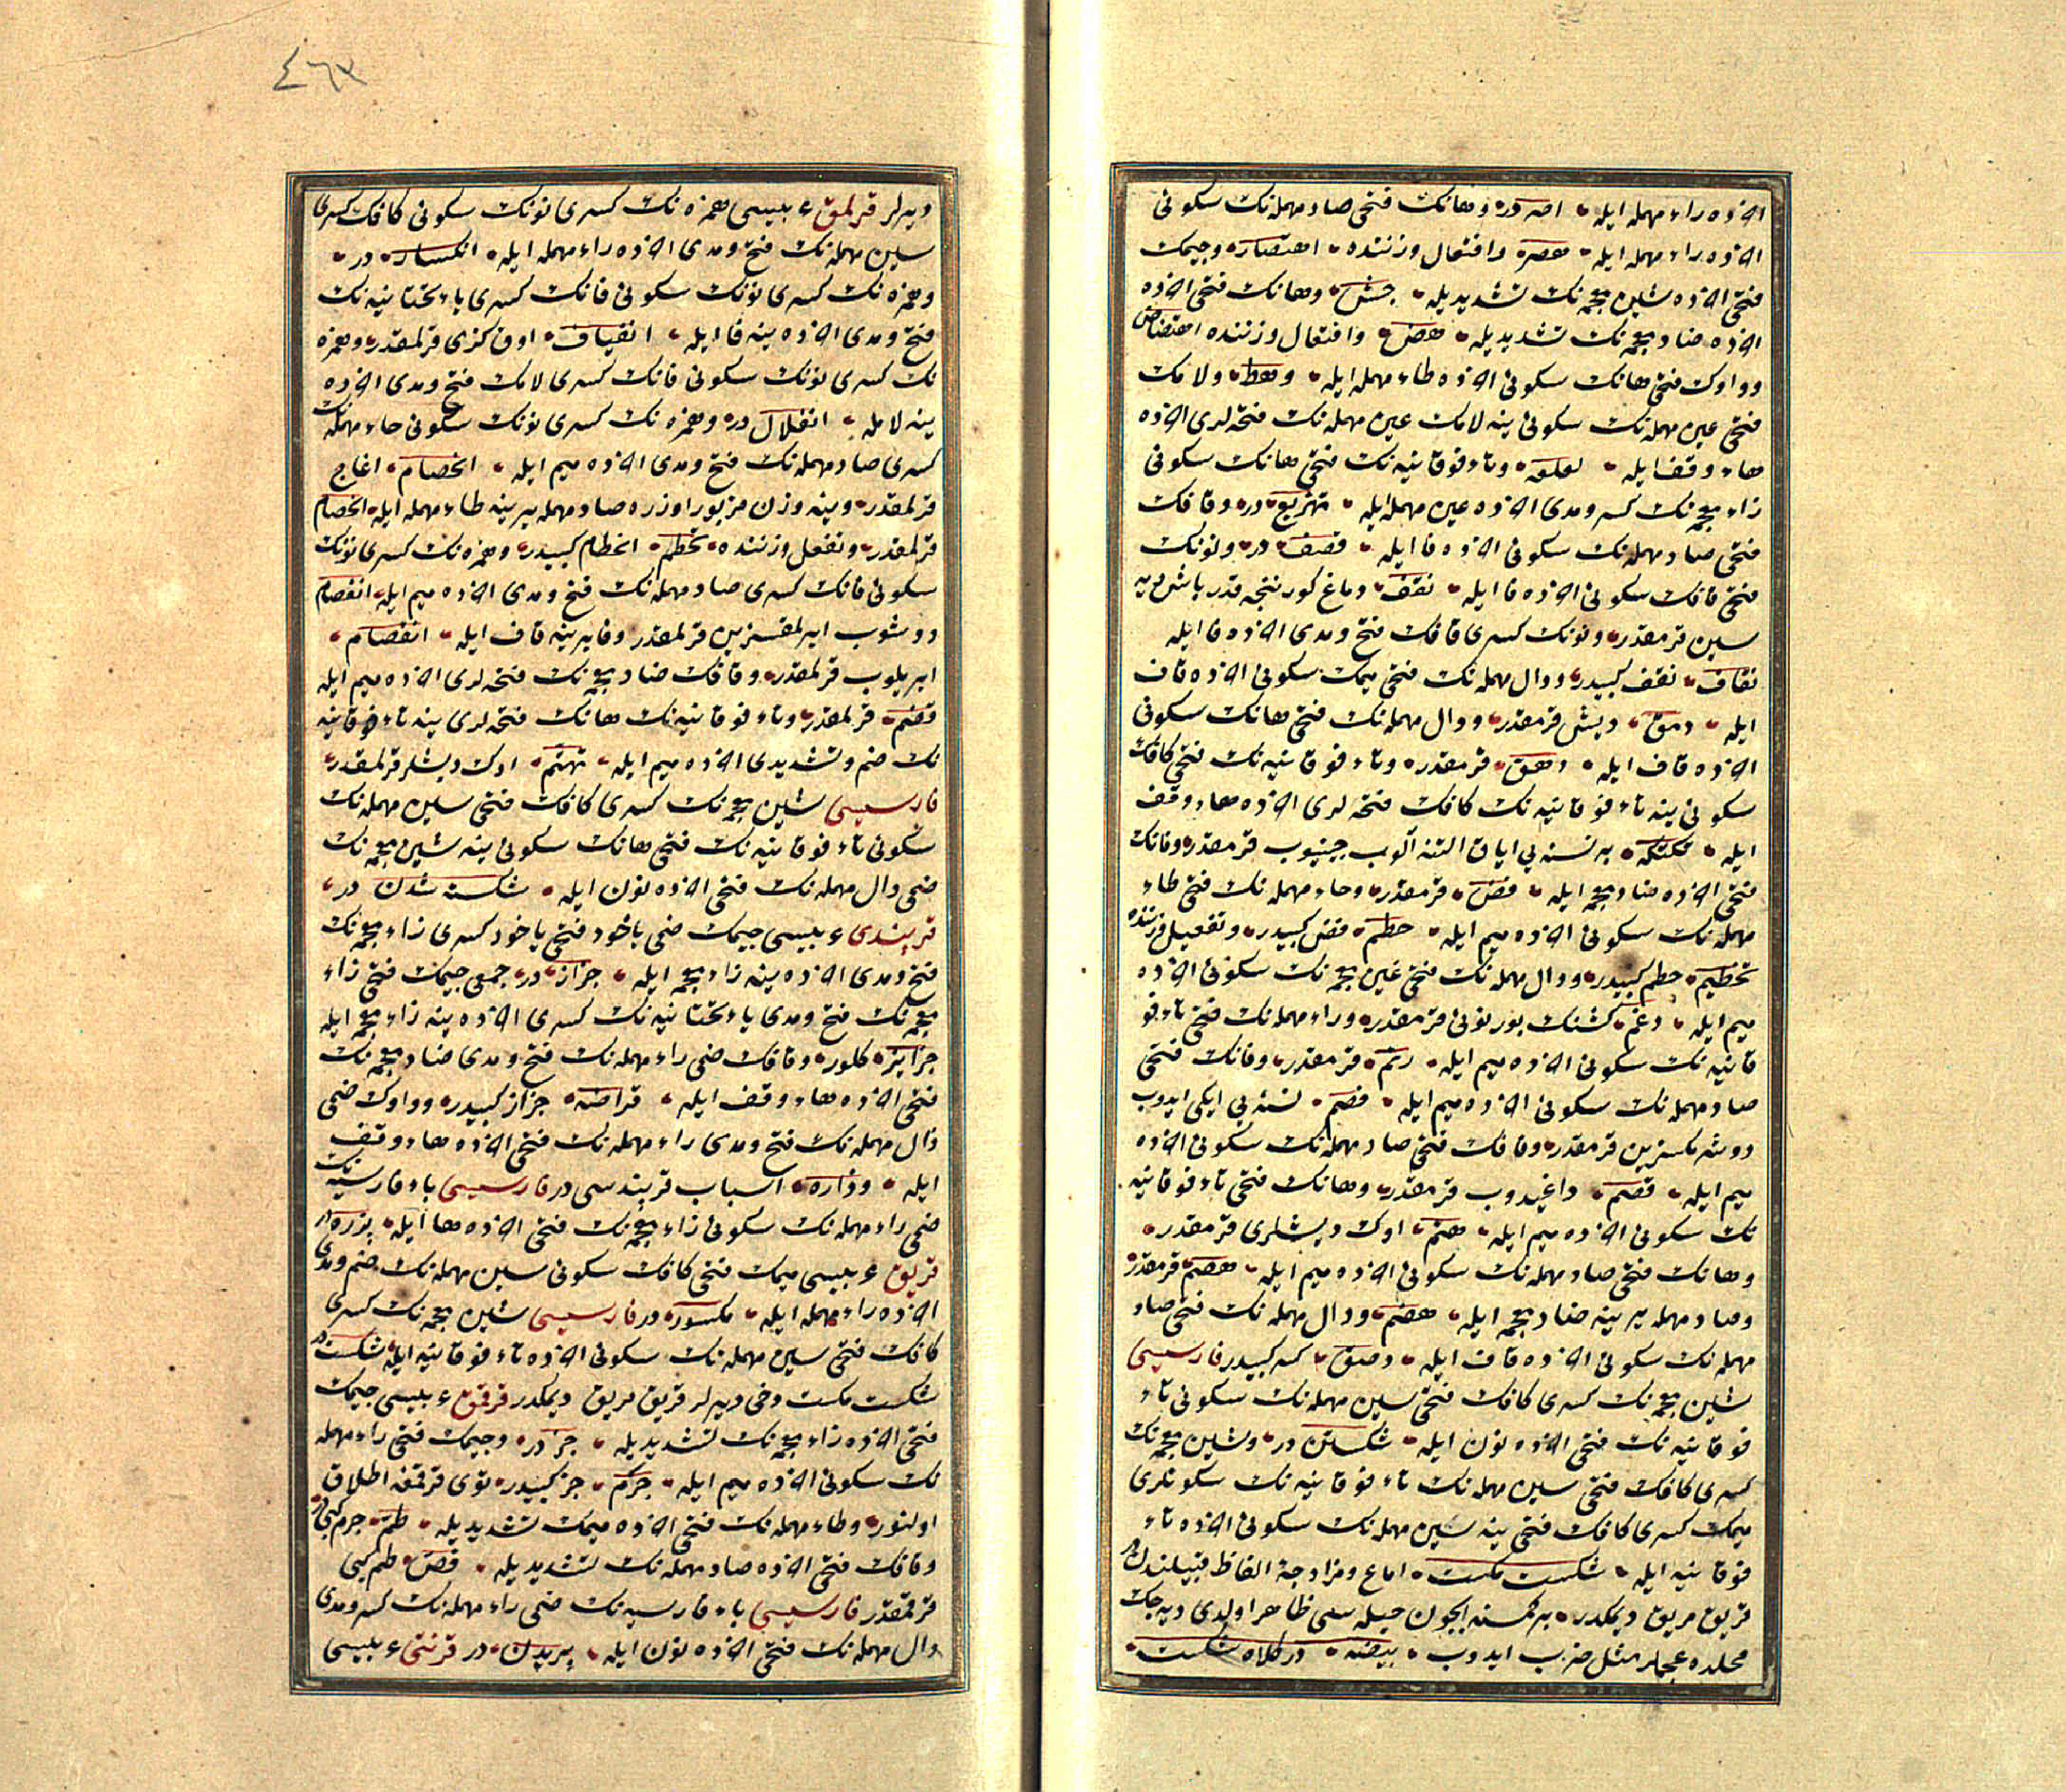 اخرده راء مهمله ايله اصر در وهانك فتحى صاد مهمله نك سكونى
اخرده راء مهمله ايله هصر وافتعال وزننده اهتصار وجيمك
فتحى اخرده شين معجمه نك تشديديله جش وهانك فتحى اخرده
اخرده ضاد معجمه نك تشديديله هض وافتعال وزننده اهتضاض
وواوك فتحى هانك سكونى اخرده طاء مهمله ايله وهط ولامك
فتحى عين مهمله نك سكونى ينه لامك عين مهمله نك فتحه لرى اخرده
هاء وقف ايله لعلعه وتاء فوقانيه نك فتحى هانك سكونى
زاء معجمه نك كسر ومدى اخرده عين مهمله ايله تهزيع در وقافك
فتحى صاد مهمله نك سكونى اخرده فا ايله قصف در ونونك
فتحى قافك سكونى اخرده فا ايله نقف دماغ كورننجه قدر باش ديه
سين قرمقدر ونونك كسرى قافك فتح ومدى اخرده فا ايله
نقاف نقف كبيدر ودال مهمله نك فتحى ميمك سكونى اخرده قاف
ايله دمق ديش قرمقدر ودال مهمله نك فتحى هانك سكونى
اخرده قاف ايله دهق قرمقدر وتاء فوقانيه نك فتحى كافك
سكونى ينه تاء فوقانيه نك كافك فتحه لرى اخرده هاء وقف
ايله تكتكه بر نسنه يى اياق التنه آلوب چينيوب قرمقدر وفانك
فتحى اخرده ضاد معجمه ايله فض قرمقدر وحاء مهمله نك فتحى طاء
مهمله نك سكونى اخرده ميم ايله حطم فض كبيدر وتفعيل وزننده
تحطيم حطم كبيدر ودال مهمله نك فتحى غين معجمه نك سكونى اخرده
ميم ايله دغم كشنك بورنونى قرمقدر وراء مهمله نك فتحى تاء فو
قانيه نك سكونى اخرده ميم ايله رتم قرمقدر وفانك فتحى
صاد مهمله نك سكونى اخرده ميم ايله فصم نسنه يى ايكى ايدوب
دوشرمكسزين قرمقدر وقافك فتحى صاد مهمله نك سكونى اخرده
ميم ايله قصم داغيدوب قرمقدر وهانك فتحى تاء فوقانيه
نك سكونى اخرده ميم ايله هتم اوك ديشلرى قرمقدر
وهانك فتحى صاد مهمله نك سكونى اخرده ميم ايله هصم قرمقدر
وصاد مهمله يرينه ضاد معجمه ايله هضم ودال مهمله نك فتحى صاد
مهمله نك سكونى اخرده قاف ايله دصق كسر كبيدر فارسيسى
شين معجمه نك كسرى كافك فتحى سين مهمله نك سكونى تاء
فوقانيه نك فتحى اخرده نون ايله شكستن در وشين معجمه نك
كسرى كافك فتحى سين مهمله نك تاء فوقانيه نك سكونلرى
ميمك كسرى كافك فتحى ينه سين مهمله نك سكونى اخرده تاء
فوقانيه ايله شكست مكست اماع ومزاوجة الفاظ قبيلندندر
قريق مريق ديمكدر بر كمسنه ايچون حيله سى ظاهر اولدى ديه جك
محلده عجملر مثل ضرب ايدوب بيضه در كلاه شكست
ديرلر قرلمق عربيسى همزه نك كسرى نونك سكونى كافك كسرى
سين مهمله نك فتح ومدى اخرده راء مهمله ايله انكسار در
وهمزه نك كسرى نونك سكونى قانك كسرى ياء تحتانيه نك
فتح ومدى اخرده ينه فا ايله انقياف اوق كزى قرلمقدر وهمزه
نك كسرى نونك سكونى فانك كسرى لامك فتح ومدى اخرده
ينه لامله انفلال در وهمزه نك كسرى نونك سكونى حاء مهمله نك
كسرى صاد مهمله نك فتح ومدى اخرده ميم ايله انحصام اغاج
قرلمقدر وينه وزن مزبور اوزره صاد مهمله يرينه طاء مهمله ايله انحطام
قرلمقدر وتفعل وزننده تحطم انحطام كبيدر وهمزه نك كسرى نونك
سكونى فانك كسرى صاد مهمله نك فتح ومدى اخرده ميم ايله انفصام
دوشوب ايرلمقسزين قرلمقدر وفا يرينه قاف ايله انقصام
ايريلوب قرلمقدر وقافك ضاد معجمه نك فتحه لرى اخرده ميم ايله
قضم قرلمقدر وتاء فوقانيه نك هانك فتحه لرى ينه تاء فوقانيه
نك ضم وتشديدى اخرده ميم ايله تهتم اوك ديشلر قرلمقدر
فارسيسى شين معجمه نك كسرى كافك فتحى سين مهمله نك
سكونى تاء فوقانيه نك فتحى هانك سكونى ينه شين معجمه نك
ضمى دال مهمله نك فتحى اخرده نون ايله شكسته شدن در
قرپندى عربيسى جيمك ضمى ياخود فتحى ياخود كسرى زاء معجمه نك
فتح ومدى اخرده ينه زاء معجمه ايله جزاز در جمعى جيمك فتحى زاء
معجمه نك فتح ومدى ياء تحتانيه نك كسرى اخرده ينه زاء معجمه ايله
جزايز كلور وقافك ضمى راء مهمله نك فتح ومدى ضاد معجمه نك
فتحى اخرده هاء وقف ايله قراضه جزاز كبيدر وواوك ضمى
ذال مهمله نك فتح ومدى راء مهمله نك فتحى اخرده هاء وقف
ايله وذاره اسباب قرپندسى در فارسيسى باء فارسيه نك
ضمى راء مهمله نك سكونى زاء معجمه نك فتحى اخرده ها ايله پرزه در
قريق عربيسى ميمك فتحى كافك سكونى سين مهمله نك ضم ومدى
اخرده راء مهمله ايله مكسور در فارسيسى شين معجمه نك كسرى
كافك فتحى سين مهمله نك سكونى اخرده تاء فوقانيه ايله شكست در
شكست مكست دخى ديرلر قريق مريق ديمكدر قرقمق عربيسى جيمك
فتحى اخرده زاء معجمه نك تشديديله جز در وجيمك فتحى راء مهمله
نك سكونى اخرده ميم ايله جرم جز كبيدر توى قرقمغه اطلاق
اولنور وطاء مهمله نك فتحى اخرده ميمك تشديديله طم جرم كبيدر
وقافك فتحى اخرده صاد مهمله نك تشديديله قص طم كبى
قرقمقدر فارسيسى باء فارسيه نك ضمى راء مهمله نك كسر ومدى
دال مهمله نك فتحى اخرده نون ايله پريدن در قرنتى عربيسى